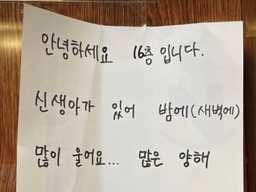 안녕하세요 16층 입니다.
신생아가 있어 밤에(새벽에)
많이 울어요... 많은 양해